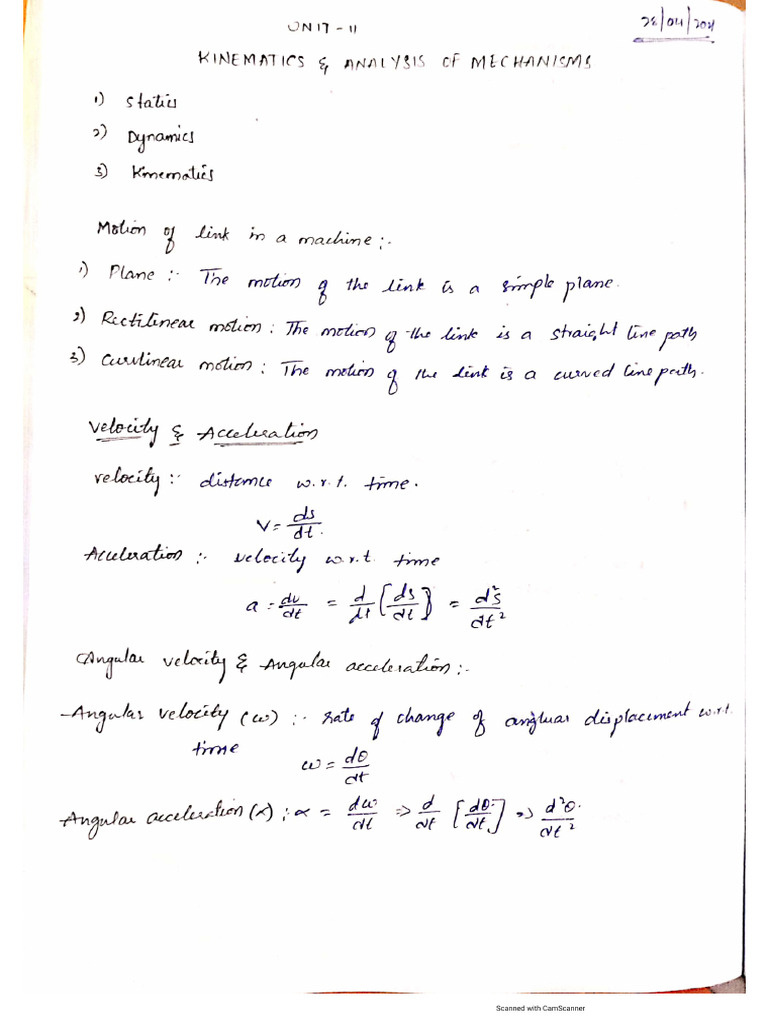 UNIT-II
28/04/2021
KINEMATICS & ANALYSIS OF MECHANISMS
1) Statics
2) Dynamics
3) Kinematics
Motion of link in a machine:-
1) Plane :- The motion of the link is a simple plane.
2) Rectilinear motion : The motion of the link is a straight line path
3) Curvilinear motion : The motion of the link is a curved line path.
Velocity & Acceleration
velocity :- distance w.r.t. time.
V = ds/dt.
Acceleration :- velocity w.r.t. time
a = dv/dt = d/dt [ds/dt] = d²s/dt²
Angular velocity & Angular acceleration :-
-Angular velocity (ω) :- rate of change of angluar displacement w.r.t.
time
ω = dθ/dt
Angular acceleration (α) : α = dω/dt => d/dt [dθ/dt] => d²θ/dt²
Scanned with CamScanner